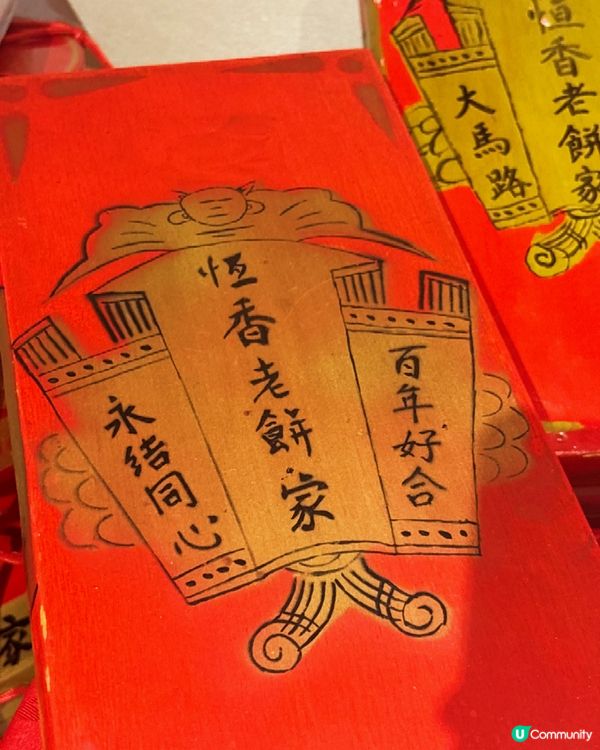 恆香老餅家
百年好合
永結同心
恒香老餅家
大馬路
家
U Community